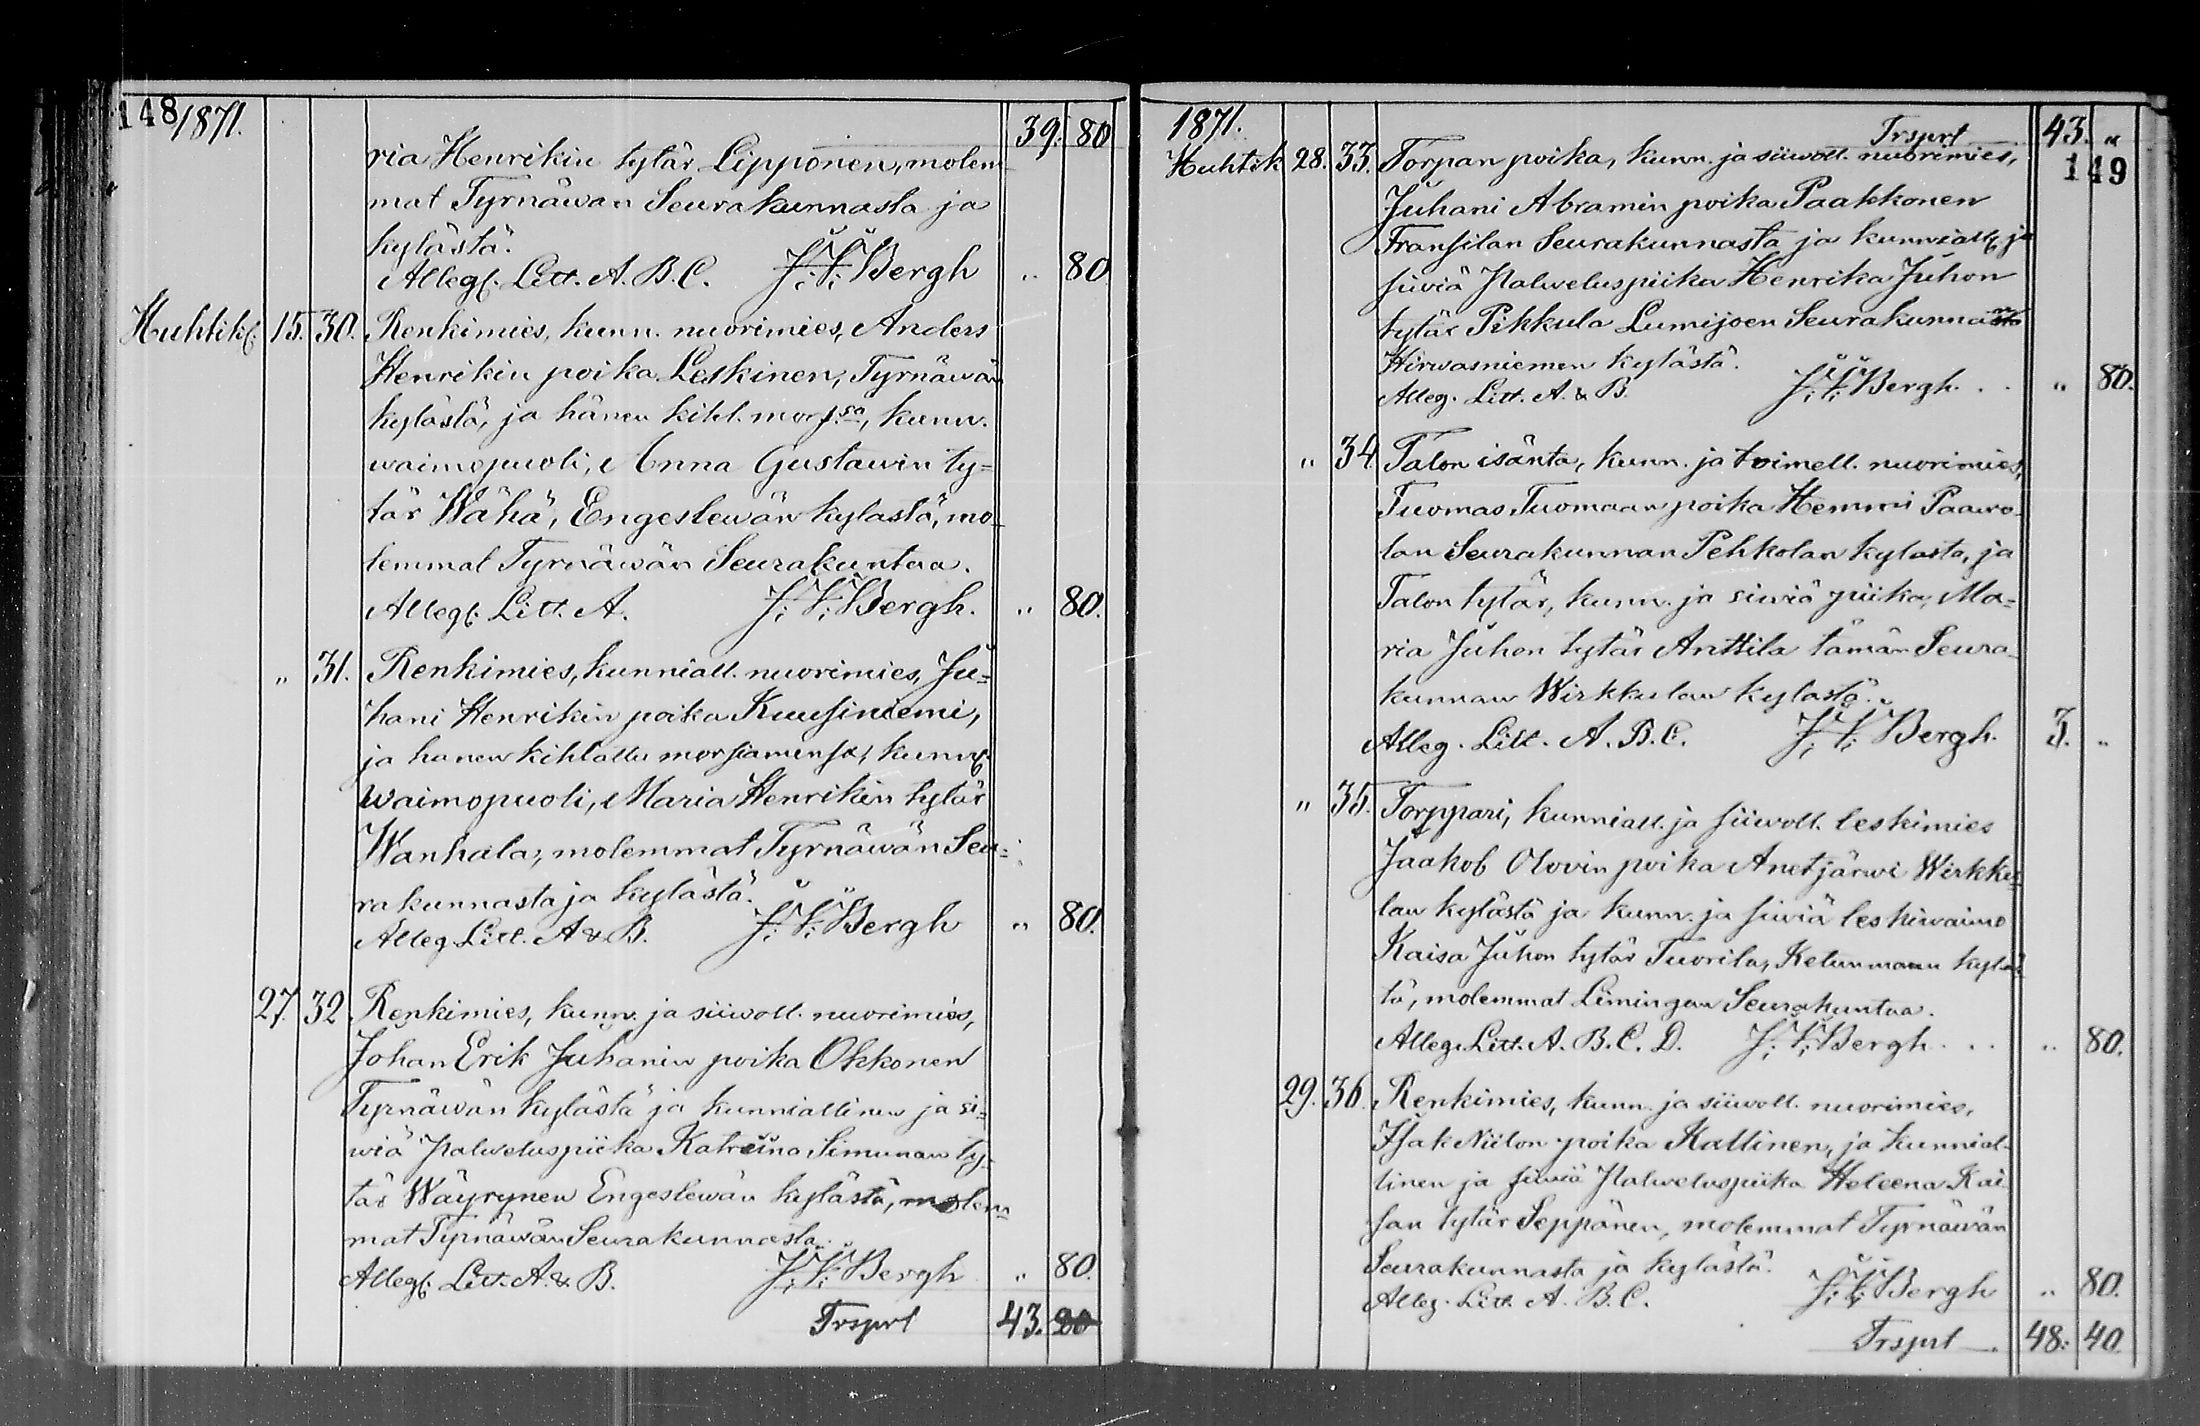 148 1871.
39. 80
ria Henrikin tytär Lipponen, molem-
mat Tyrnäwän Seurakunnasta ja
kylästä.
Alleg. Litt. A. B. C. J. V. Bergh " 80
Huhtik. 15. 30. Renkimies, kunn. nuorimies, Anders
Henrikin poika Leskinen, Tyrnäwän
kylästä, ja hänen kihl. mors.sa, kunn.
waimopuoli, Anna Gustawin ty=
tär Wähä, Engeslewän kylästä, mo-
lemmat Tyrnäwän Seurakuntaa.
Alleg. Litt. A. J. V. Bergh. " 80.
" 31. Renkimies, kunniall. nuorimies, Ju=
hani Henrikin poika Kuusiniemi,
ja hanen kihlattu morsiamensa, kunn.
waimopuoli, Maria Henrikin tytär
Wanhala, molemmat Tyrnäwän Seu=
rakunnasta ja kylästä.
Alleg. Litt. A & B. J. V. Bergh " 80.
27. 32 Renkimies, kunn. ja siiwoll. nuorimies,
Johan Erik Juhanin poika Okkonen
Tyrnäwän kylästä ja kunniallinen ja si=
wiä Palweluspiika Katriina Simunan ty-
tär Wäyrynen Engeslewän kylästä, molem-
mat Tyrnäwän Seurakunnasta.
Alleg. Litt. A. & B. J. V. Bergh " 80.
Trsprt 43. 80
1871. Trsprt 43. "
149
Huhtik 28. 33. Torpan poika, kunn. ja siiwoll. nuorimies,
Juhani Abramin poika Paakkonen
Fransilan Seurakunnasta ja kunniall. ja
siiviä Palweluspiika Henrika Juhon
tytär Pikkula Lumijoen Seurakunnan
Hirwasniemen kylästä.
Alleg. Litt. A. & B. J. V. Bergh. " 80.
" 34 Talon isäntä, kunn. ja toimell. nuorimies,
Tuomas Tuomaan poika Hemmi Paawo-
lan Seurakunnan Pehkolan kylasta, ja
Talon tytär, kunn. ja siwiä piika, Ma=
ria Juhon tytär Anttila tämän Seura-
kunnan Wirkkulan kylästä.
Alleg. Litt. A. B. C. J. V. Bergh. 3. "
" 35. Torppari, kunniall. ja siiwoll. leskimies
Jaakob Olovin poika Anetjärwi Wirkku-
lan kylästä ja kunn. ja siwiä leskiwaimo
Kaisa Juhon tytär Tuorila, Ketunmaan kyläs
tä, molemmat Limingan Seurakuntaa.
Alleg. Litt. A. B. C. D. J. V. Bergh. " 80.
29. 36. Renkimies, kunn. ja siiwoll. nuorimies,
Isak Niilon poika Kallinen, ja kunnial-
linen ja siiwiä Palweluspiika Heleena Kai-
san tytär Seppänen, molemmat Tyrnäwän
Seurakunnasta ja kylästä.
Alleg. Litt. A. B. C. J. V. Bergh " 80.
Trsprt. 48. 40.